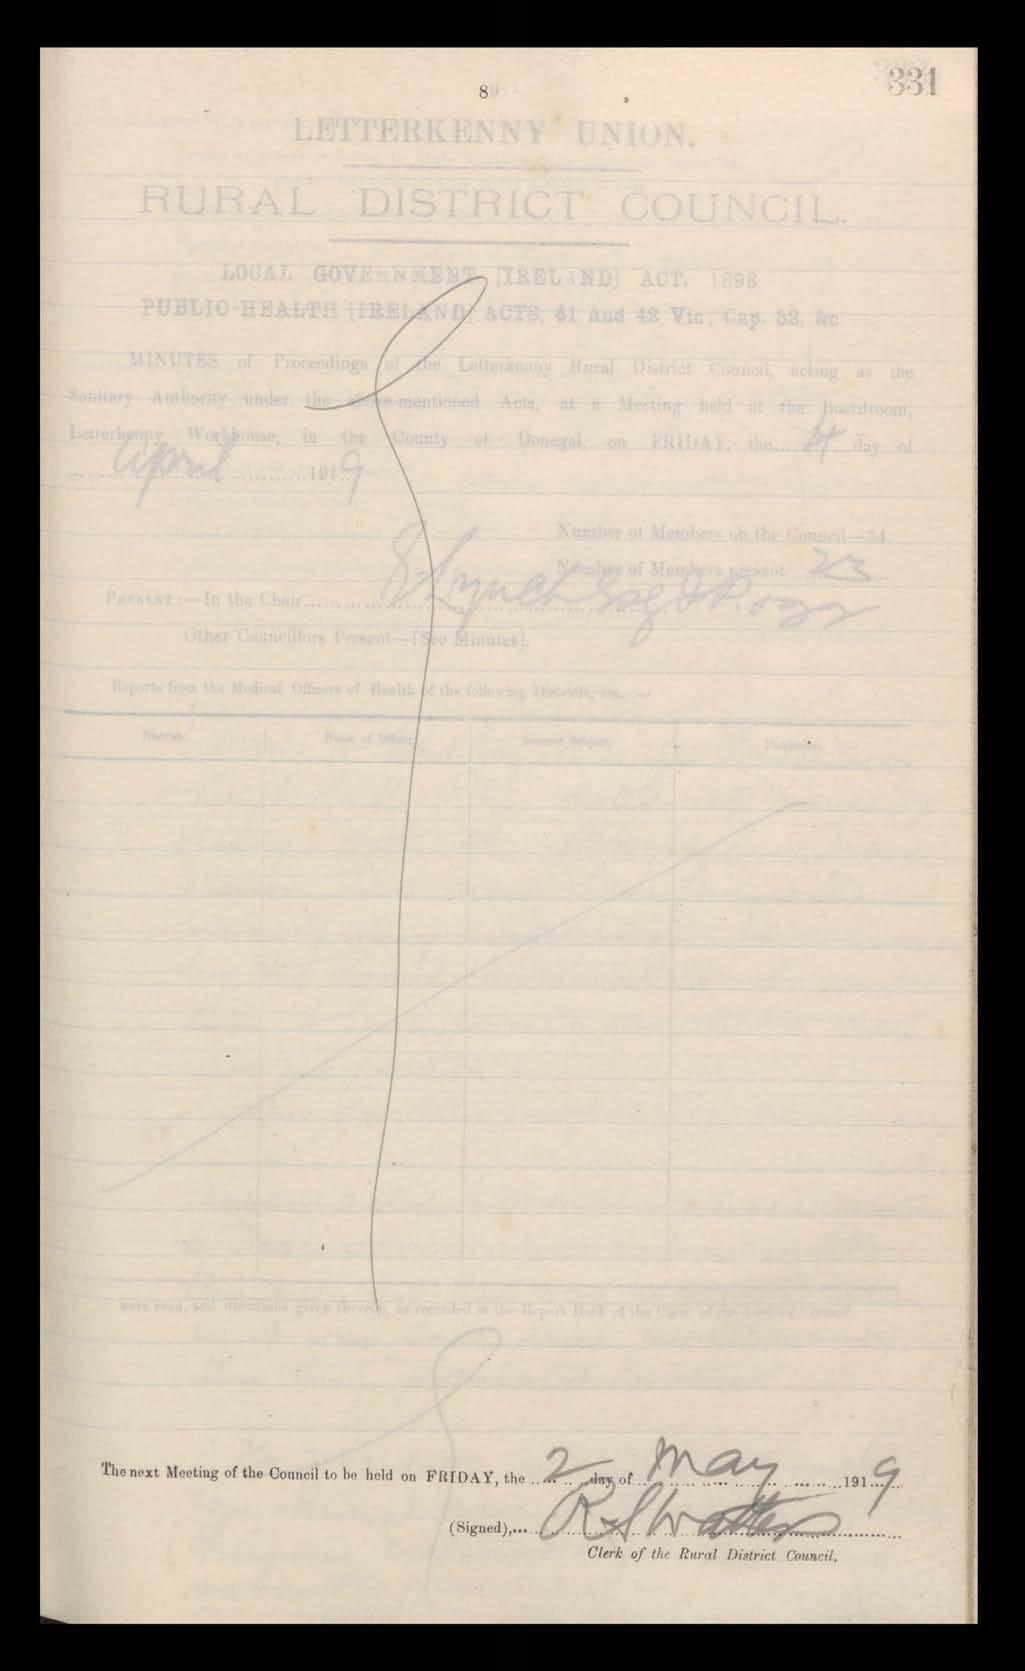 8
331
LETTERKENNY UNION.
RURAL DISTRICT COUNCIL.
LOCAL GOVERNMENT [IRELAND] ACT, 1898
PUBLIC HEALTH [IRELAND] ACTS, 41 and 42 Vic., Cap. 52, &c
MINUTES of Proceedings of the Letterkenny Rural District Council, acting as the
Sanitary Authority under the above-mentioned Acts, at a Meeting held at the Boardroom,
Letterkenny Workhouse, in the County of Donegal, on FRIDAY, the 4 day of
April 1919
Number of Members on the Council—24.
Number of Members present 23
PRESENT:—In the Chair Lynch Esq J.P.
Other Councillors Present—[See Minutes].
Reports from the Medical Officers of Health of the following Districts, viz. :—
District. Name of Officer. Subject.
were read, and directions given thereon, as recorded in the Report Book of the
The next Meeting of the Council to be held on FRIDAY, the 2 day of May 1919
(Signed), R S Watters
Clerk of the Rural District Council.